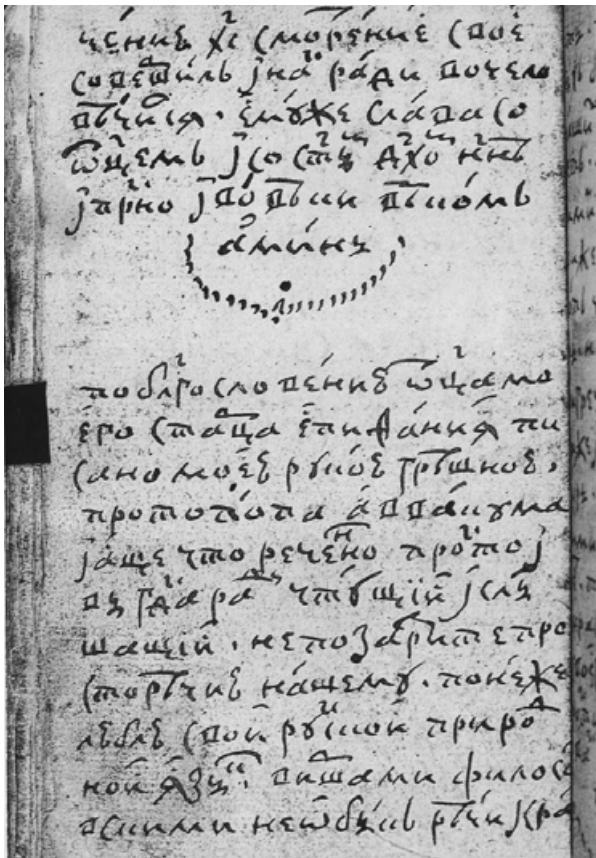 че́нїе хⷭ҇ смоⷮре́нїе своѐ
соверⷲи́лъ ї наⷭ҇ ра́ди вочело
вѣ́чьсѧ. є҆му́же сла́ва со
ѿц҃емъ ї со ст҃ымъ дх҃оⷨ нн҃ѣ
ї при́ⷭно ї во́ вѣки вѣко́мъ
а҆ми́нь
по блгⷭ҇ослове́нию ѿц҃а мо
є҆го ста́рⷰ҇а є҆пифа́нїѧ пи
са́но мое́ю руко́ю грѣ́шною.
протопо́па а҆ввакума
ї а́ще что рече́нⷩо проⷭ҇то ї
въ гдⷭ҇а раⷣ чту́щїй ї слы
шащїй. не позаⷥри́те про
сторѣ́чию на́шему. поне́же
люблю̀ сво́й руⷭ҇ско́й прироⷣ
но́й ѧзыⷦ. виⷬшами филосо
вскими не ѡ҆бы́къ рѣ́чи кра